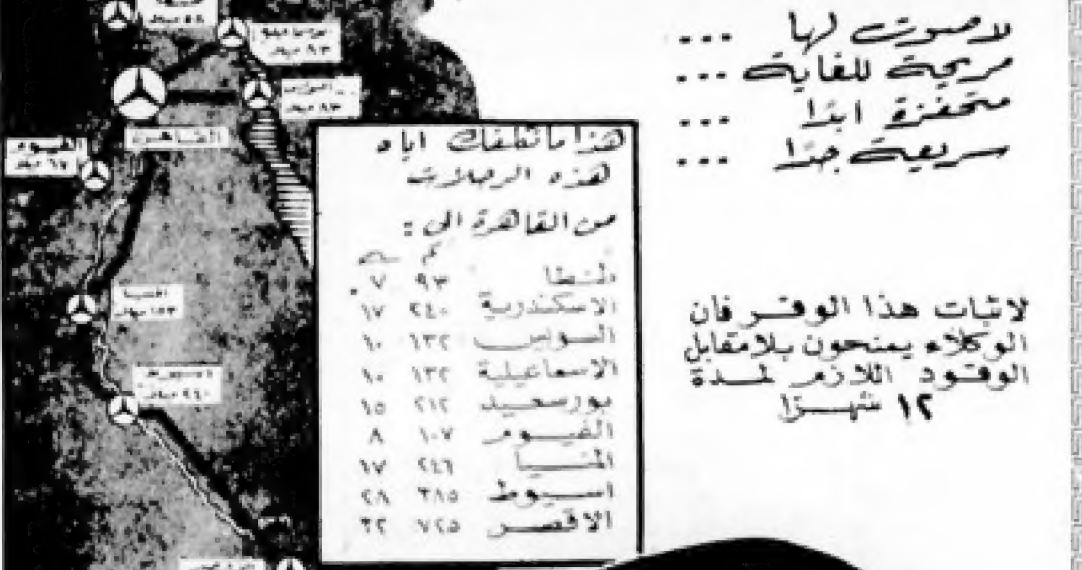 لاصوت لها ...
مريحة للغاية ...
متحفزة ابدا ...
سريعة جدا ...
هذا ما تكلفك اياه
هذه الرحلات
من القاهرة الى :
كم
طنطا ٩٣ ٧
الاسكندرية ٢٤٠ ١٧
السويس ١٣٢ ١٠
الاسماعيلية ١٣٢ ١٠
بورسعيد ٢١٢ ١٥
الفيوم ١٠٧ ٨
المنيا ٢٤٦ ١٧
اسيوط ٣٨٥ ٢٨
الاقصر ٧٢٥
لاثبات هذا الوفر فان
الوكلاء يمنحون بلامقابل
الوقود اللازم لمدة
١٢ شهرا
٩٣ ميل
القاهرة
الفيوم
٦٧ ميل
المنيا
١٥٣ ميل
٢٤٠ ميل